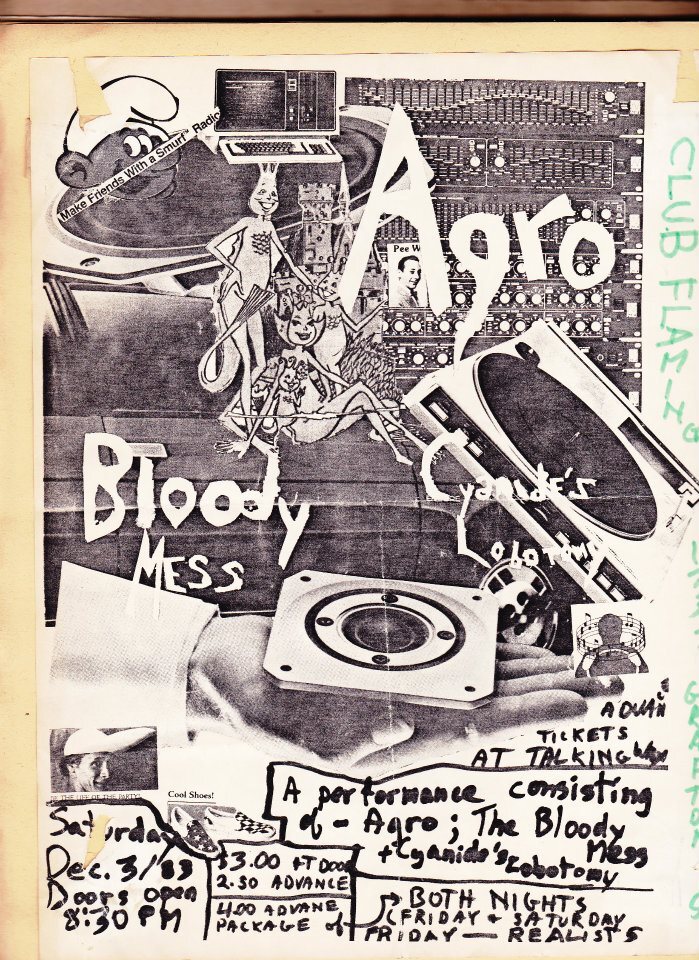 Make Friends With a Smurf™ Radio
Agro
Pee W
Bloody
Mess
Cyanide's
Lobotomy
CLUB FLAMINGO
TICKETS
AT TALKING WAX
BE THE LIFE OF THE PARTY!
Cool Shoes!
A performance consisting
of - Agro; The Bloody
Mess
+ Cyanide's Lobotomy
Saturday
Dec. 3/83
Doors open
8:30 PM
$3.00 AT DOOR
2.50 ADVANCE
4.00 ADVANE
PACKAGE of
BOTH NIGHTS
(FRIDAY + SATURDAY
FRIDAY — REALISTS